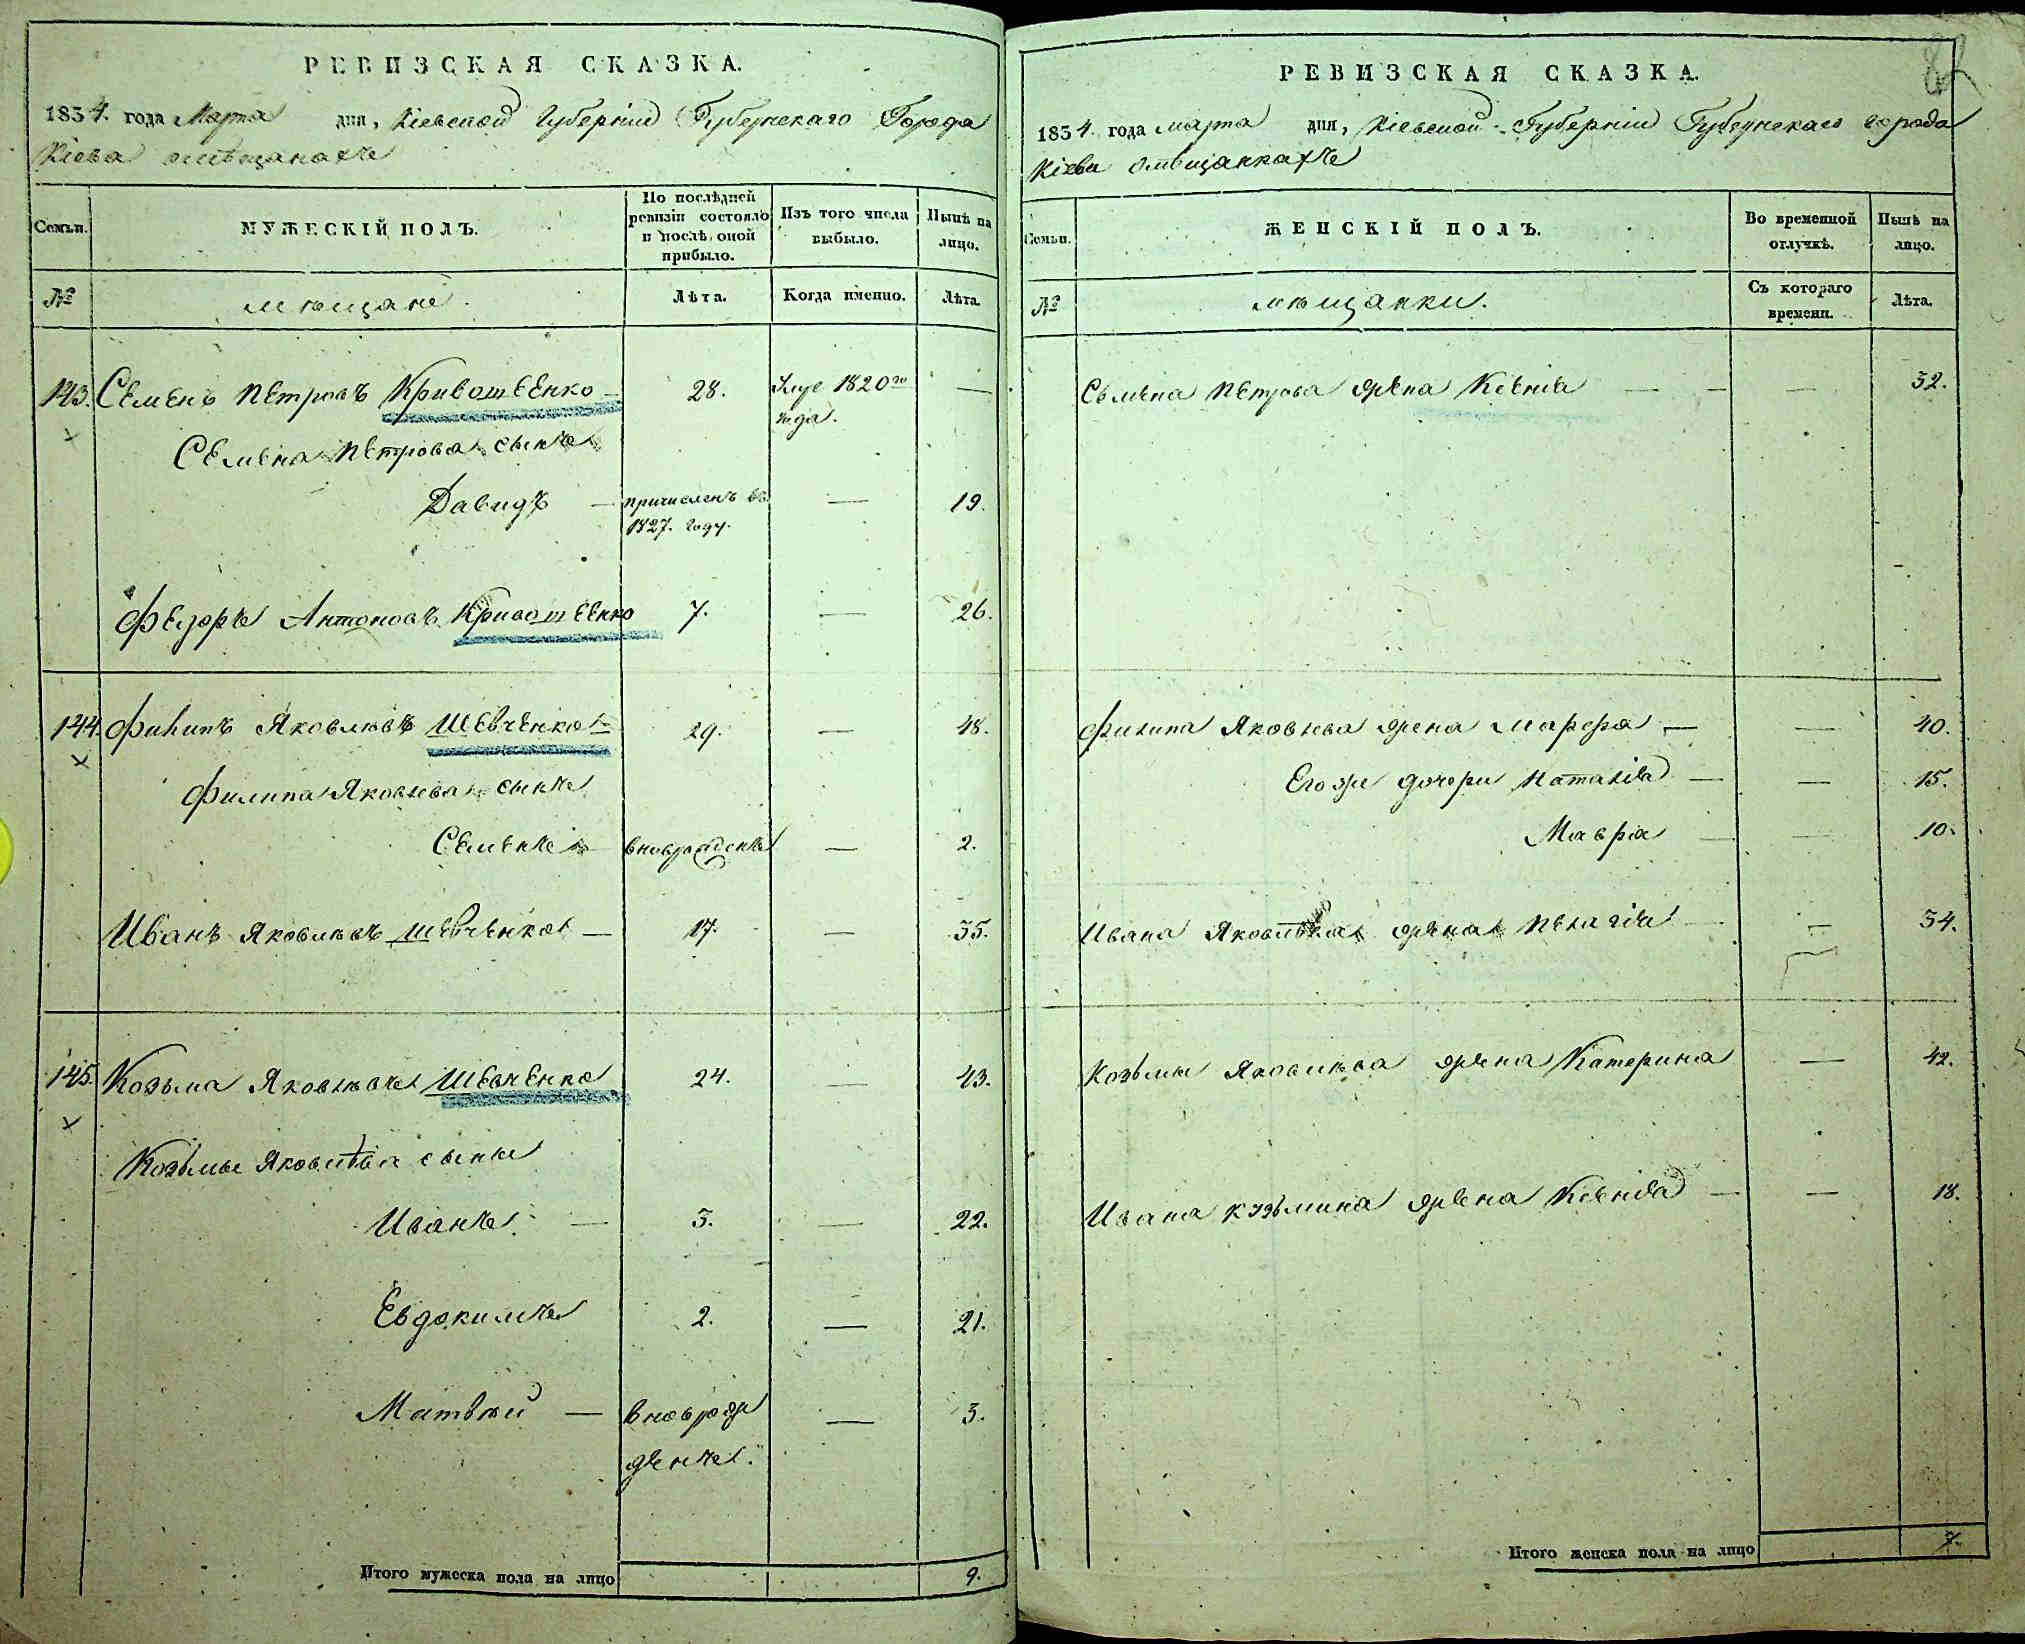 РЕВИЗСКАЯ СКАЗКА.
1834. года Марта дня, Кіевской Губерніи Губернскаго Города
Кіева омѣщанахъ
Семьи.
МУЖЕСКІЙ ПОЛЪ.
По послѣдней ревизіи состояло и послѣ оной прибыло.
Изъ того числа выбыло.
Нынѣ на лицо.
№
мѣщане.
Лѣта.
Когда именно.
Лѣта.
143. Семенъ Петровъ Кривошеенко 28. 1820го года. —
Семена Петрова сынъ
Давидъ — причисленъ въ 1827. году. — 19.
Федоръ Антоновъ Кривошеенко 7. — 26.
144. Филипъ Яковлевъ Шевченко 29. — 48.
Филипа Яковлева сынъ
Семенъ вновьрожденъ — 2.
Иванъ Яковлевъ Шевченко — 17. — 35.
145. Козьма Яковлевъ Шевченко 24. — 43.
Козьмы Яковлева сыны
Иванъ — 3. — 22.
Евдокимъ 2. — 21.
Матвѣй — вновьрож — 3.
денъ.
Итого мужеска пола на лицо 9.
82
РЕВИЗСКАЯ СКАЗКА.
1834. года марта дня, Кіевской Губерніи Губернскаго города
Кіева омѣщанкахъ
Семьи.
ЖЕНСКІЙ ПОЛЪ.
Во временной отлучкѣ.
Нынѣ на лицо.
№
мѣщанки.
Съ котораго времени.
Лѣта.
Семена Петрова жена Ксенія — — — 32.
Филипа Яковлева жена Марфа — — 40.
Егоже дочери Наталія — — 15.
Мавра — — 10.
Ивана Яковлева жена Пелагія — — 34.
Козьмы Яковлева жена Катерина — 42.
Ивана Козьмина жена Ксенія — — 18.
Итого женска пола на лицо 7.